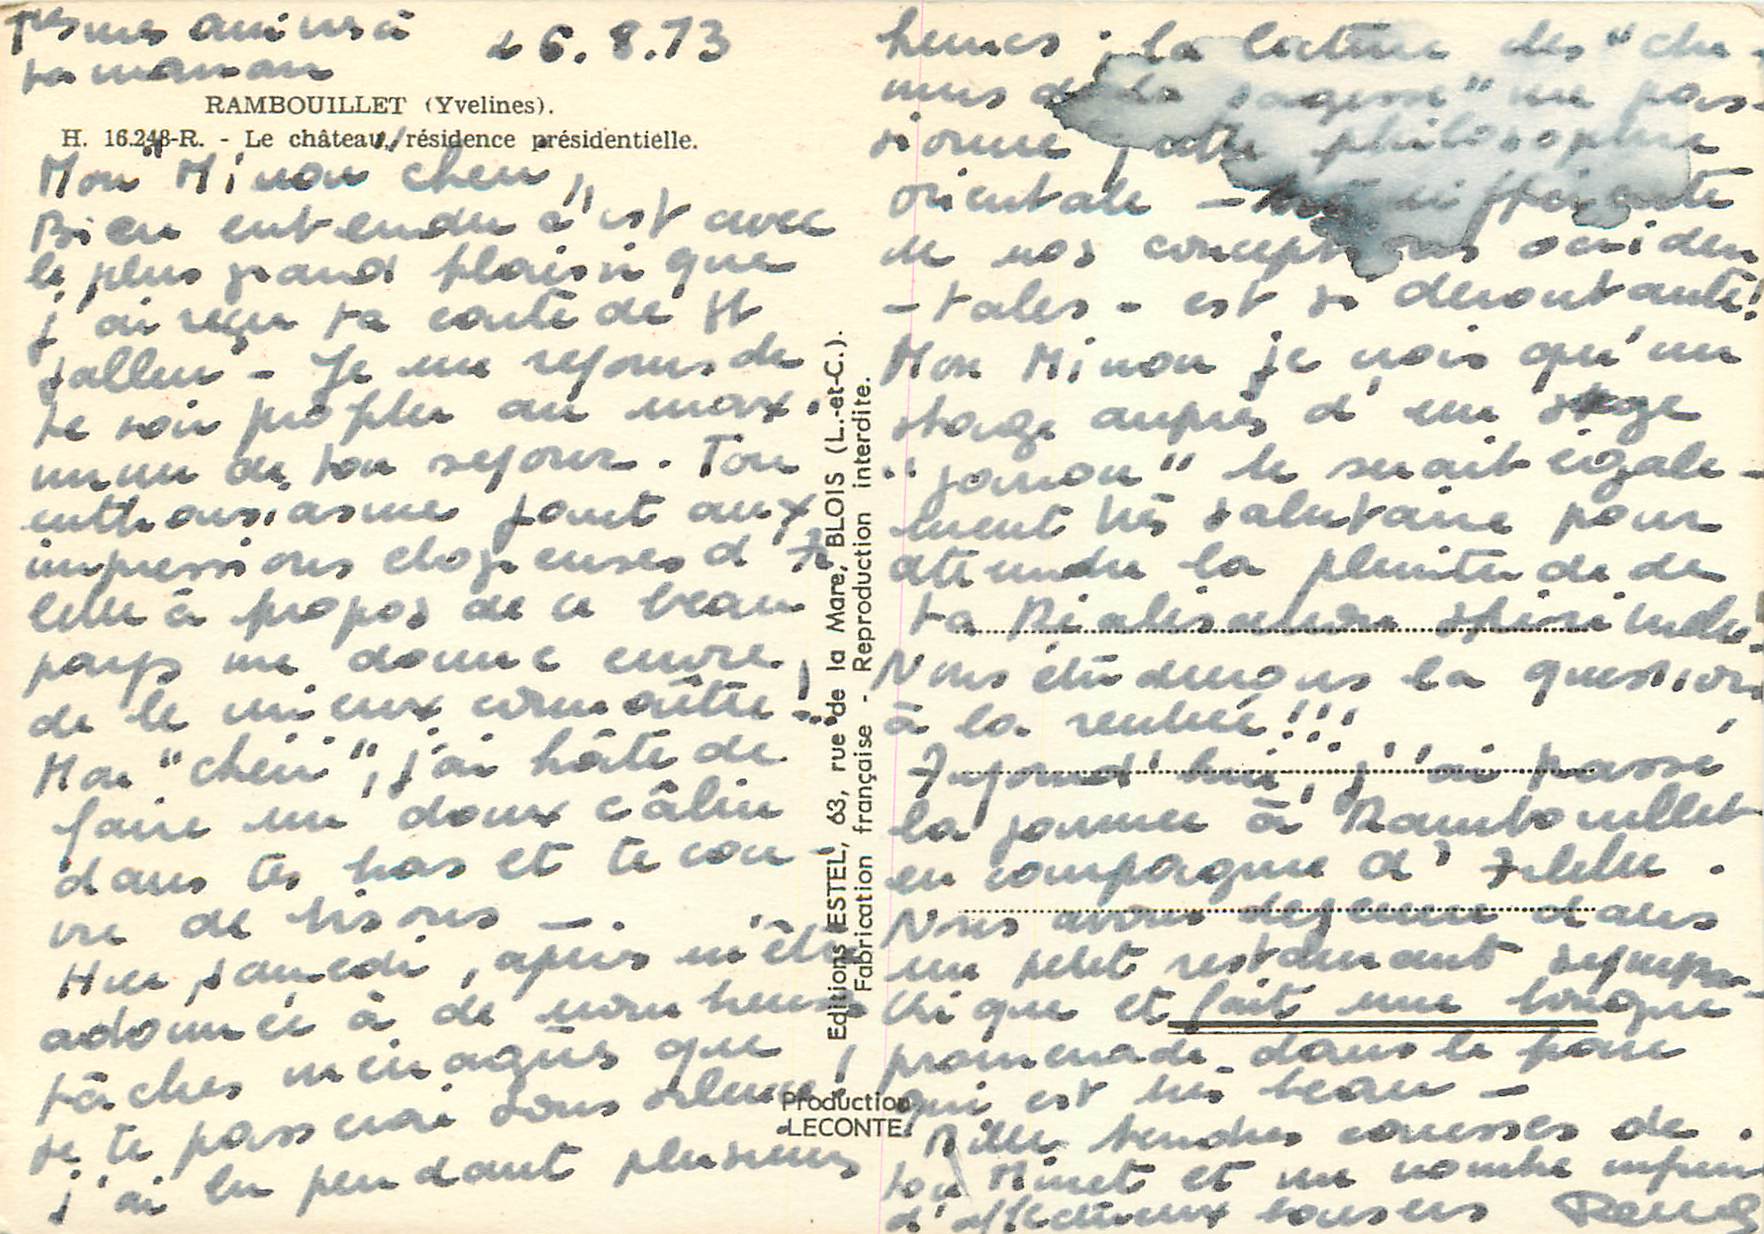 mes amitiés à
ta maman
26.8.73
RAMBOUILLET (Yvelines).
H. 16.248-R. - Le château, résidence présidentielle.
Mon "Minou cheri",
Bien entendu c'est avec
le plus grand plaisir que
j'ai reçu ta carte de St
Je me rejouis de
te voir profiter au maxi
mum de ton sejour. Ton
enthousiasme joint aux
impressions elogieuses d'
à propos de ce beau
pays me donne envie
de le mieux connaître...!
Mon "chéri", j'ai hâte de
faire un doux câlin
dans tes bras et te cou-
vrir de bisous -.
Hier samedi, après m'être
adonnée à de nombreuses
tâches ménagères que
je te passerai sous silence!
j'ai lu pendant plusieurs
heures : la lecture des "che-
mins de la sagesse" me pas-
sionne, cette philosophie
orientale - très différente
de nos conceptions occiden
-tales - est si deroutante!
Mon Minou je crois qu'un
stage auprès d'un sage
"" te serait égale-
ment très salutaire pour
atteindre la plenitude de
ta Réalisation spirituelle.
Nous étudierons la question
à la rentrée!!!
Aujourd'hui, j'ai passé
la journee à Rambouillet
en compagnie d'
Nous avons dejeuné dans
un petit restaurant sympa-
thique et fait une longue
promenade dans le parc
qui est très beau -
Mille tendres caresses de
ton Minet et un nombre infini
d'affectueux baisers
Editions ESTEL, 63, rue de la Mare, BLOIS (L.-et-C.).
Fabrication française - Reproduction interdite.
Production
LECONTE